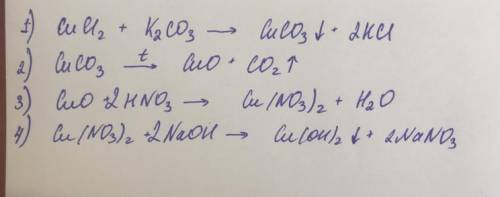 1) CuCl₂ + K₂CO₃ → CuCO₃↓ + 2KCl
2) CuCO₃ →ᵗ CuO + CO₂↑
3) CuO + 2HNO₃ → Cu(NO₃)₂ + H₂O
4) Cu(NO₃)₂ + 2NaOH → Cu(OH)₂↓ + 2NaNO₃